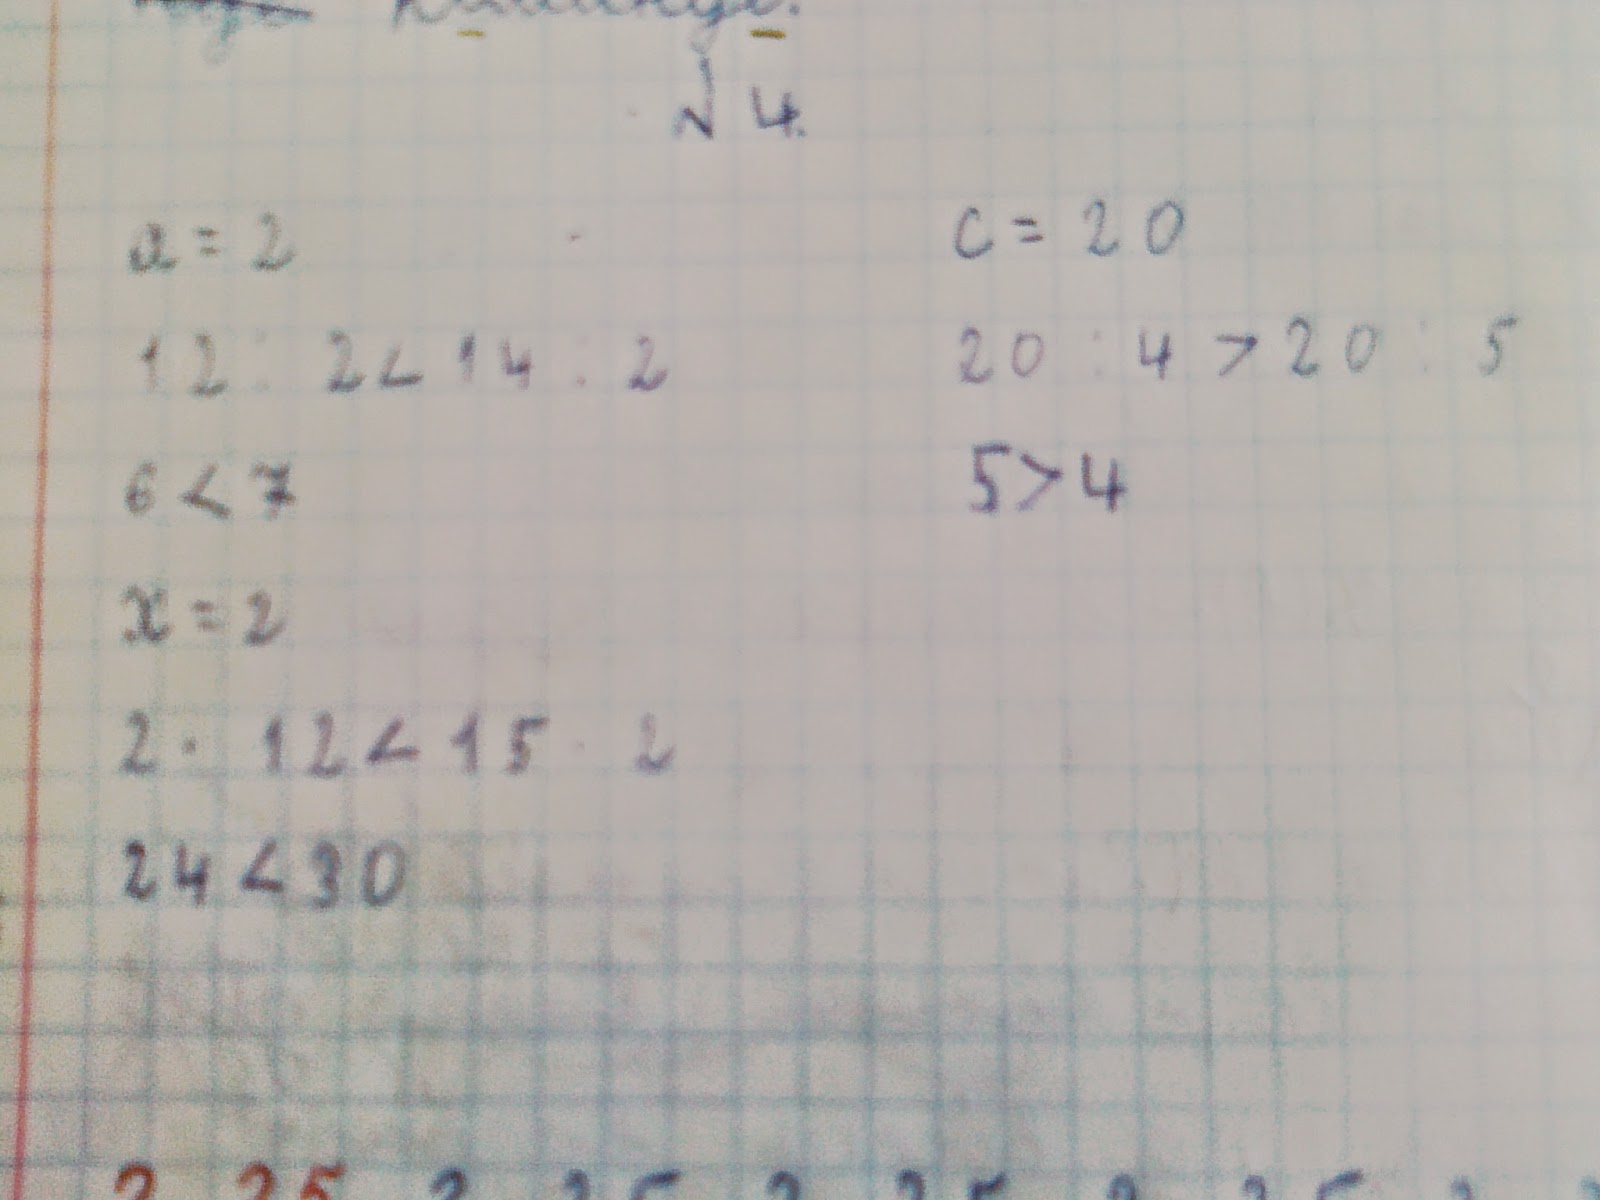 № 4.
a = 2
12 : 2 < 14 : 2
6 < 7
x = 2
2 · 12 < 15 · 2
24 < 30
c = 20
20 : 4 > 20 : 5
5 > 4